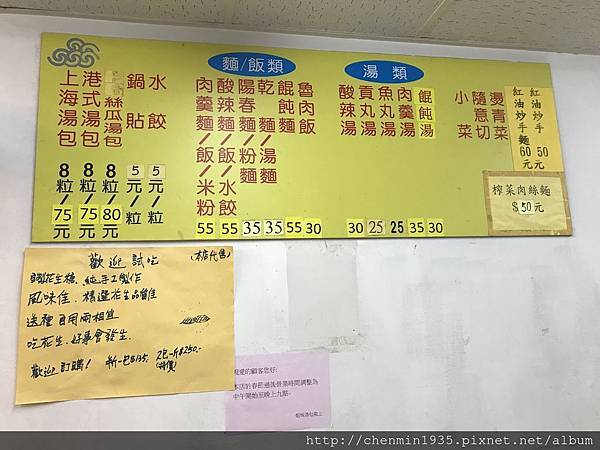 麵/飯類
湯類
上海湯包
8粒/75元
港式湯包
8粒/75元
絲瓜湯包
8粒/80元
鍋貼
5元/粒
水餃
5元/粒
肉羹麵/飯/米粉
55
酸辣麵/飯/水餃
55
陽春麵/粉
35
乾麵/湯麵
35
餛飩麵
55
魯肉飯
30
酸辣湯
30
貢丸湯
25
魚丸湯
25
肉羹湯
35
餛飩湯
30
小菜
隨意切
燙青菜
紅油炒手麵 60元
紅油炒手 50元
榨菜肉絲麵
$50元
歡迎試吃
(本店代售)
花生糖、純手工製作
風味佳、精選花生品質佳
送禮自用兩相宜
吃花生、好事會發生.
歡迎訂購! 新一包$135. 2包-斤$250.
(特價)
親愛的顧客您好:
本店於春節過後營業時間調整為
中午開始至晚上九點.
http://chenmin1935.pixnet.net/album